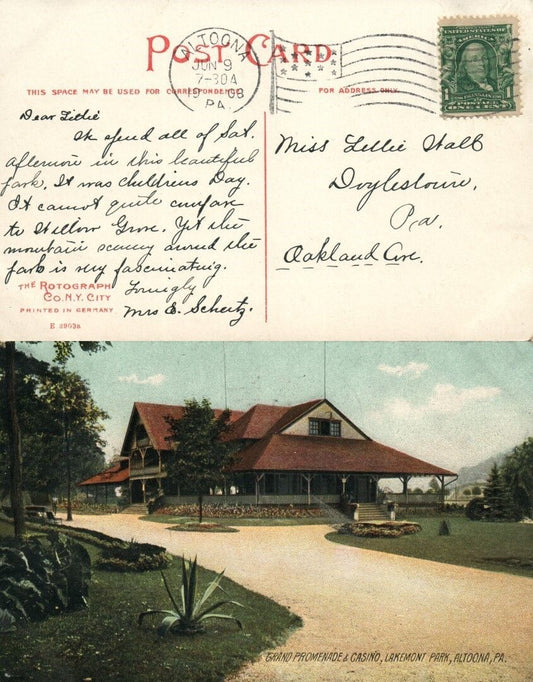 POST CARD
ALTOONA
JUN 9
7-30A
1908
PA.
UNITED STATES OF AMERICA
1 1
ONE CENT
THIS SPACE MAY BE USED FOR CORRESPONDENCE
FOR ADDRESS ONLY.
Dear Lillie
We spend all of Sat.
afternoon in this beautiful
park. It was childrens Day.
It cannot quite compare
to Willow Grove. Yet the
mountain scenery around the
park is very fascinating.
Lovingly
Mrs E. Scheetz.
Miss Lillie Hall
Doylestown,
Pa.
Oakland Ave.
THE ROTOGRAPH
CO. N.Y. CITY
PRINTED IN GERMANY
GRAND PROMENADE & CASINO, LAKEMONT PARK, ALTOONA, PA.